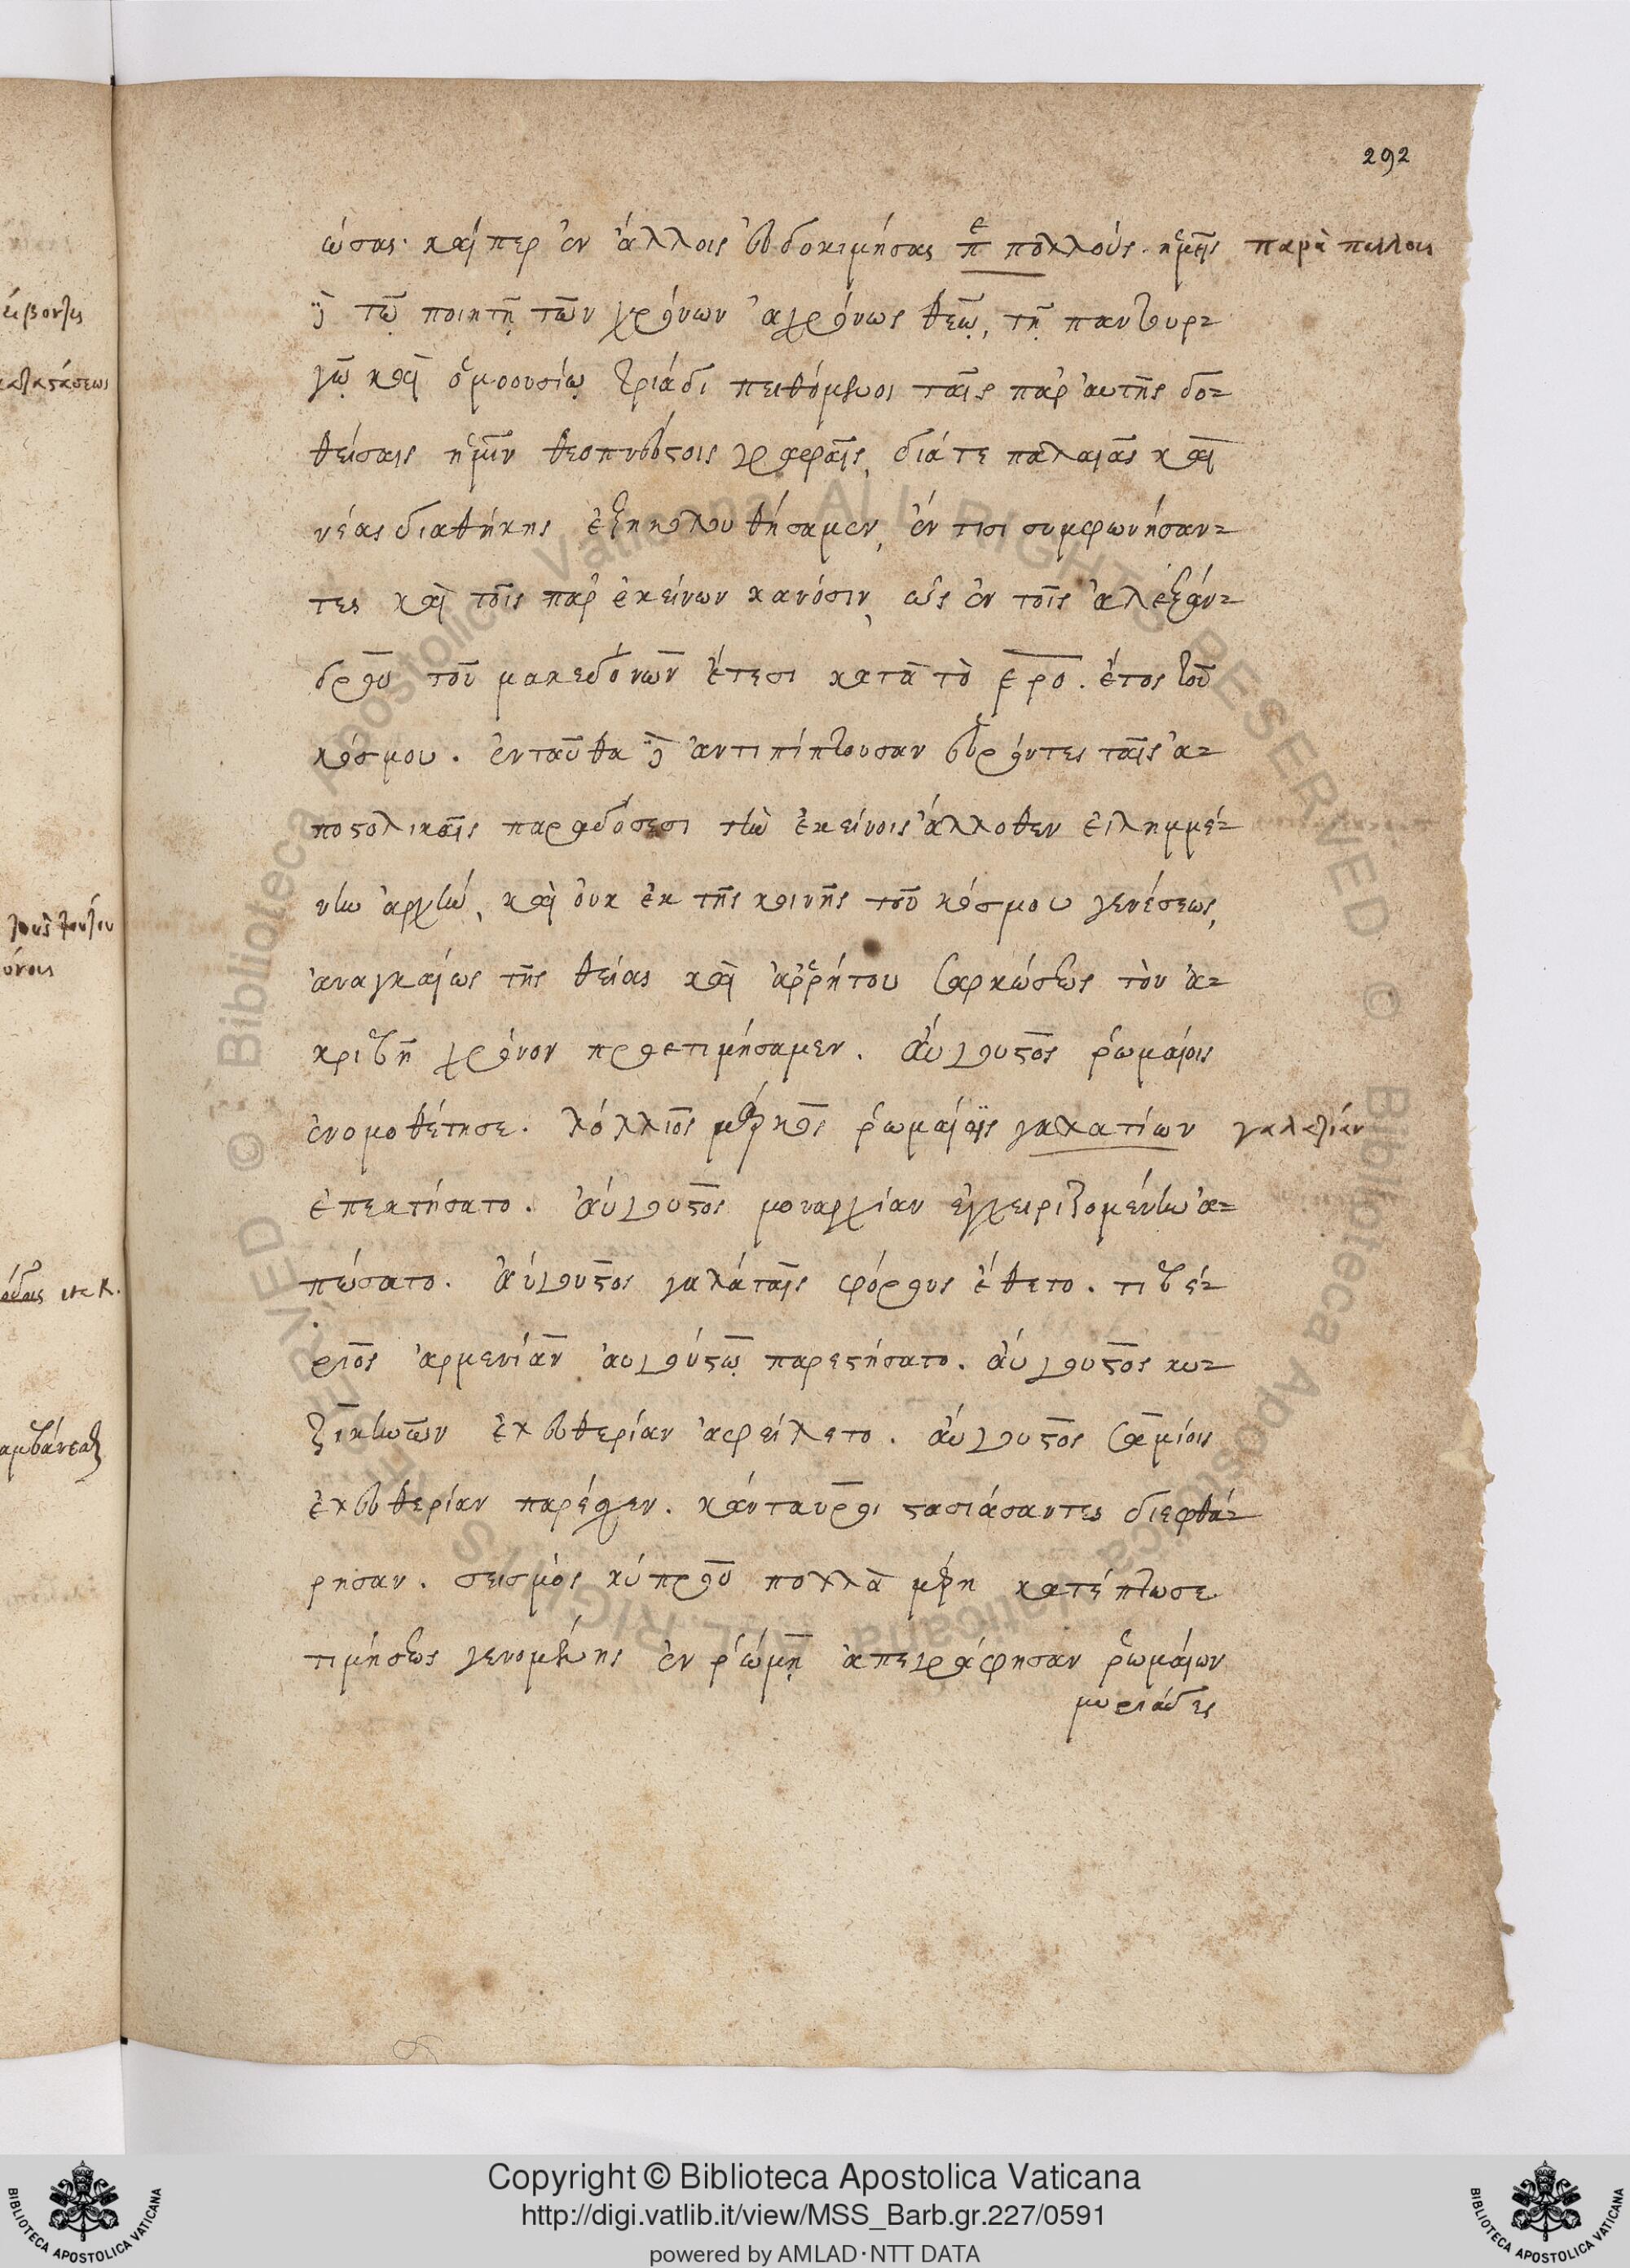 292
ώσας· καίπερ ἐν ἄλλοις εὐδοκιμήσας π̅ πολλούς. ἡμεῖς παρὰ πολλοις
δὲ τῶ ποιητῇ τῶν χρόνων ἀχρόνως θεῷ, τῇ πανουρ=
γῷ καὶ ὁμοουσίῳ τριάδι πειθόμενοι ταῖς παρ' αὐτῆς δο=
θείσαις ἡμῖν θεοπνεύστοις γραφαῖς, διά τε παλαιᾶς καὶ
νέας διαθήκης ἐξηκολουθήσαμεν, ἔν τισι συμφωνήσαν=
τες καὶ τοῖς παρ' ἐκείνων κανόσιν, ὡς ἐν τοῖς ἀλεξάν=
δρου τοῦ μακεδόνων ἔτεσι κατὰ τὸ ͵ερο. ἔτος τοῦ
κόσμου. ἐνταῦθα δὲ ἀντιπίπτουσαν εὑρόντες ταῖς ἀ=
ποστολικαῖς παραδόσεσι τὴν ἐκείνοις ἄλλοθεν εἰλημμέ=
νην ἀρχήν, καὶ οὐκ ἐκ τῆς κοινῆς τοῦ κόσμου γενέσεως,
ἀναγκαίως τῆς θείας καὶ ἀρρήτου σαρκώσεως τὸν ἀ=
κριβῆ χρόνον προετιμήσαμεν. αὔγουστος ῥωμαίοις
ἐνομοθέτησε. λόλλιος μάρκος ῥωμαίοις γαλατίων γαλατίαν
ἐπεκτήσατο. αὔγουστος μοναρχίαν ἐγχειριζομένην ἀ=
πώσατο. αὔγουστος γαλάταις φόρους ἔθετο. τιβέ=
ριος ἀρμενίαν αὐγούστῳ παρεστήσατο. αὔγουστος κυ=
ζικηνῶν ἐλευθερίαν ἀφείλετο. αὔγουστος σαμίοις
ἐλευθερίαν παρέσχεν. κάνταυροι στασιάσαντες διεφθά=
ρησαν. σεισμὸς κύπρου πολλὰ μέρη κατέπτωσε
τιμήσεως γενομένης ἐν ῥώμῃ ἀπεγράφησαν ῥωμαίων
μυριάδες
Copyright © Biblioteca Apostolica Vaticana
http://digi.vatlib.it/view/MSS_Barb.gr.227/0591
powered by AMLAD·NTT DATA